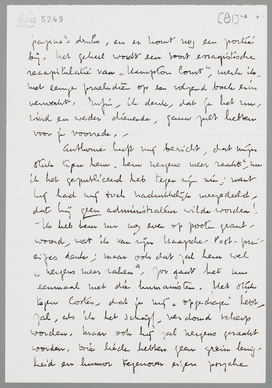 5249
pagina's druks, en er komt nog een portie
bij. Het geheel wordt een soort essayistische
recapitulatie van „Hampton Court", merk ik,
met eenige praeludiën op een volgend boek erin
verwerkt. Enfin, ik denk, dat je het nu,
en weder dienende, gauw zult hebben
voor je voorrede. –
Anthonie heeft mij bericht, dat mijn
stuk tegen hem, hem nergens meer raakt", nu
ik het gepubliceerd heb tegen zijn zin; want
hij had mij toch nadrukkelijk meegedeeld,
dat hij geen administrateur wilde worden!
Ik heb hem nu nog even op poten geant-
woord, wat ik van zijn Haagsche Post-
denk; maar ook dat zal hem wel
„nergens meer raken". Zoo gaat het nu
eenmaal met die humanisten. Het stuk
tegen Coster, dat je mij „opgedragen hebt",
zal, als ik het schrijf, verdomd scherp
worden, maar ook hij zal nergens geraakt
worden. Die lieden hebben geen grein
heid en humor tegenover eigen